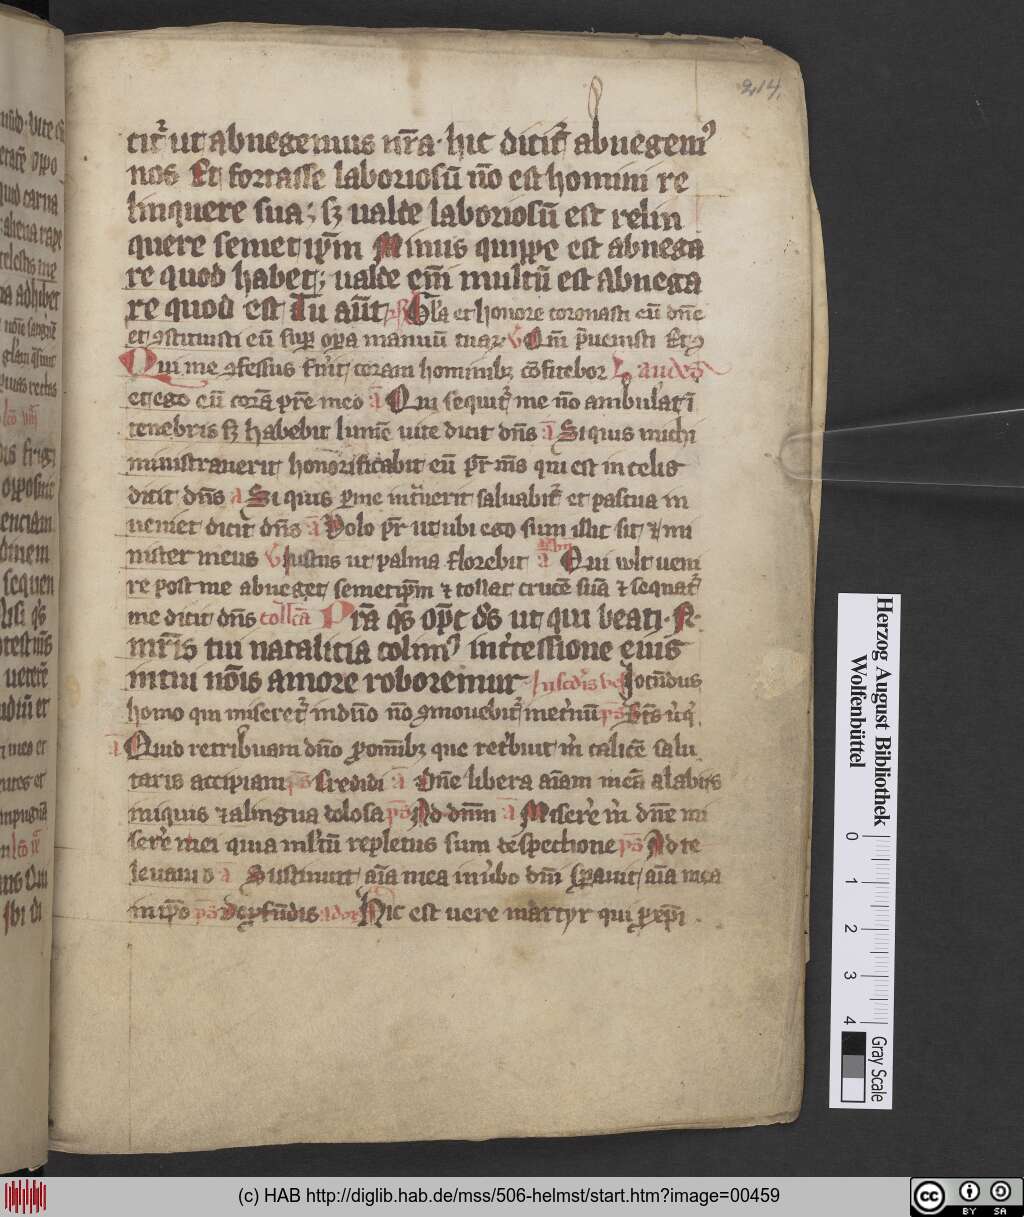 214.
citᷣ ut abnegemus nr̄a. hic dicitᷣ abnegemꝰ
nos Et fortasse laboriosū nō est homini re
linquere sua; sꝫ ualde laboriosū est relin
quere semetip̄m Minus quippe est abnega
re quod habet; ualde em̄ multū est abnega
re quod est Tu aūt Gl'a et honore coronasti eū dn̄e
et ꝯstituisti eū sup opa manuū tuaꝝ V Om̄ p̄uenisti Et
Qui me ꝯfessus fu'it coram hominibꝫ cōfitebor Laudes
et ego eū corā pr̄e meo a Qui sequitᷣ me nō ambulat ī
tenebris sꝫ habebit lumē uite dicit dn̄s a Si quis michi
ministrauerit honorificabit eū pr̄ m̄s qui est in celis
dicit dn̄s a Si quis p me int'uerit saluabitᷣ et pascua in
ueniet dicit dn̄s a Volo pr̄ ut ubi ego sum illic sit ⁊ mi
nister meus V Iustus ut palma florebit a Qui uult ueni
re post me abneget semetip̄m ⁊ tollat crucē suā ⁊ sequatᷣ
me dicit dn̄s coll'cā Pr̄a qs̄ op̄c ds̄ ut qui beati. N.
mr̄is tui natalicia colimꝰ int'cessione eius
in tui nōis amore roboremur In scd'is ves Iocūdus
homo qui miseretᷣ in dn̄o nō ꝯmouebitᷣ
a Quid retribuam dn̄o p omībꝫ que ret'buit m̄ calicē salu
taris accipiam ps Credidi a Dn̄e libera aīam meā a labiis
iniquis ⁊ a lingua dolosa ps Ad dn̄m a Misere m̄ dn̄e mi
sere mei quia ml'tū repletus sum despectione ps Ad te
leuaui o a Sustinuit aīa mea in u'bo dn̄i sp̄auit aīa mea
in ip̄o ps De pfūdis Hic est uere martyr qui p xp̄i
Herzog August Bibliothek
Wolfenbüttel
0 1 2 3 4
Gray Scale
(c) HAB http://diglib.hab.de/mss/506-helmst/start.htm?image=00459
cc BY SA